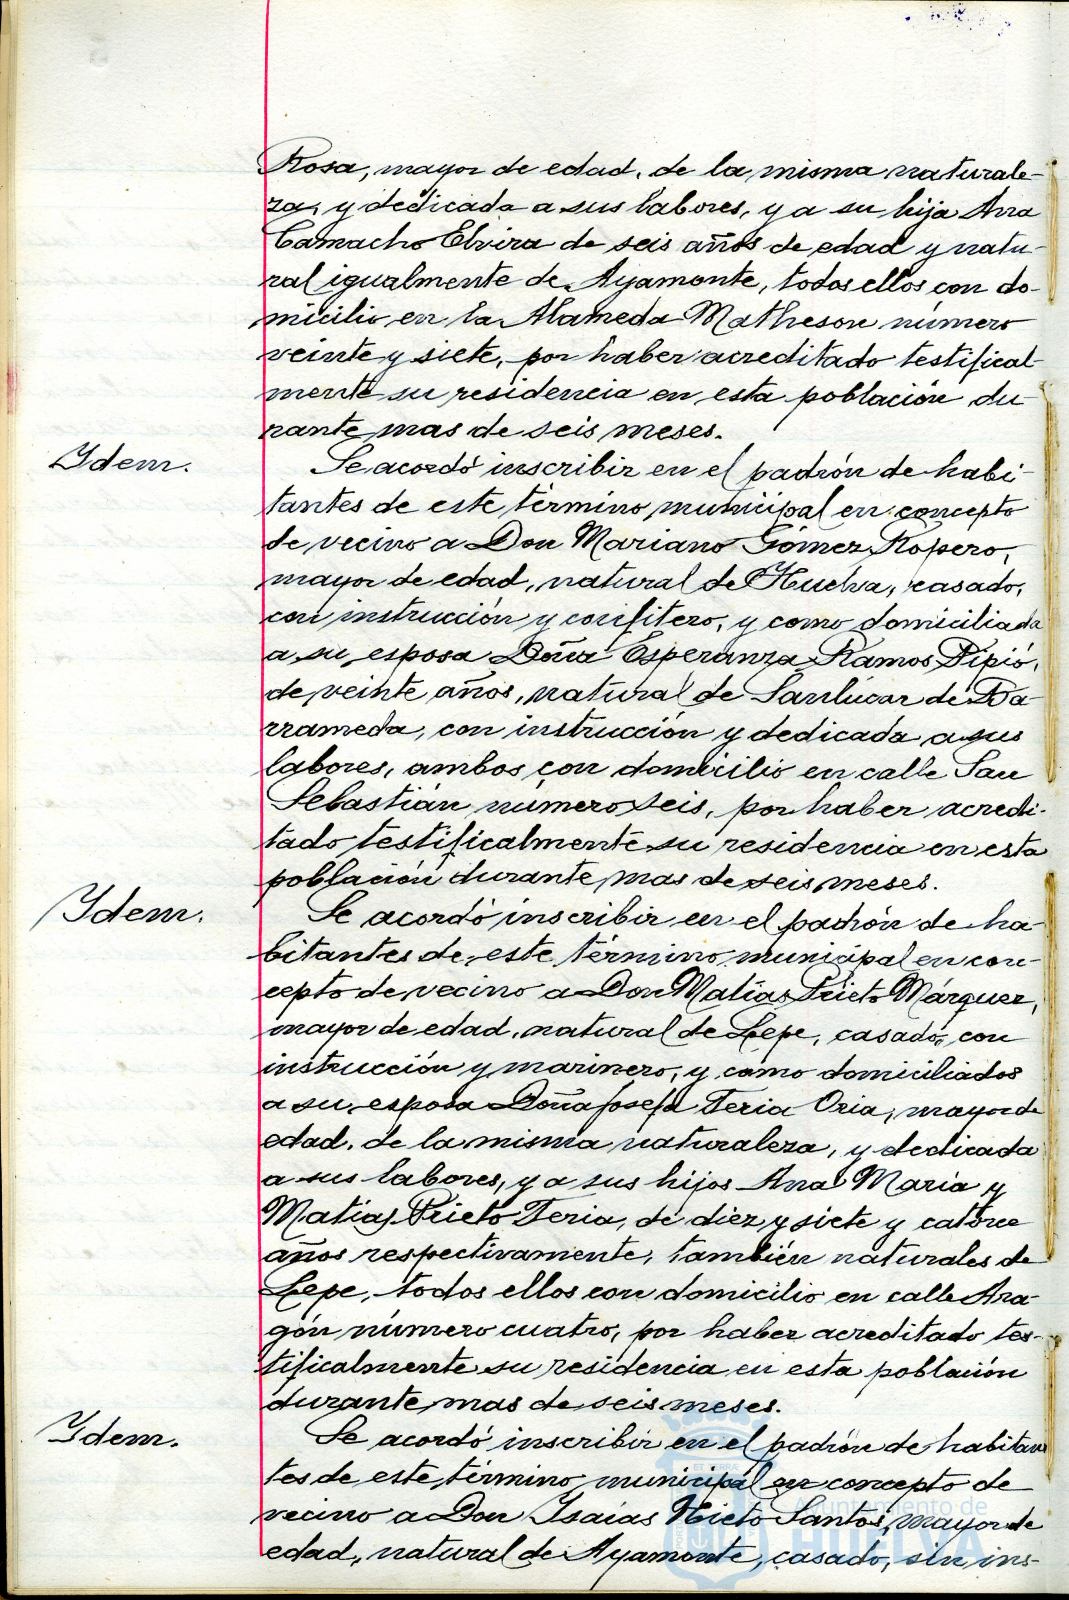 Rosa, mayor de edad, de la misma naturale-
za, y dedicada a sus labores, y a su hija Ana
Camacho Elvira de seis años de edad y natu-
ral igualmente de Ayamonte, todos ellos con do-
micilio en la Alameda Matheson número
veinte y siete, por haber acreditado testifical-
mente su residencia en esta población du-
rante mas de seis meses.
Idem.
Se acordó inscribir en el padrón de habi-
tantes de este término municipal en concepto
de vecino a Don Mariano Gómez Ropero,
mayor de edad, natural de Huelva, casado,
con instrucción y confitero, y como domiciliada
a su esposa Doña Esperanza Ramos Pipió,
de veinte años, natural de Sanlúcar de Ba-
rrameda, con instrucción y dedicada a sus
labores, ambos con domicilio en calle San
Sebastián número seis, por haber acredi-
tado testificalmente su residencia en esta
población durante mas de seis meses.
Idem.
Se acordó inscribir en el padrón de ha-
bitantes de este término municipal en con-
cepto de vecino a Don Matías Prieto Márquez,
mayor de edad, natural de Lepe, casado, con
instrucción y marinero, y como domiciliados
a su esposa Doña Josefa Feria Oria, mayor de
edad, de la misma naturaleza, y dedicada
a sus labores, y a sus hijos Ana Maria y
Matías Prieto Feria, de diez y siete y catorce
años respectivamente, también naturales de
Lepe, todos ellos con domicilio en calle Ara-
gón número cuatro, por haber acreditado tes-
tificalmente su residencia en esta población
durante mas de seis meses.
Idem.
Se acordó inscribir en el padrón de habitan
tes de este término municipal en concepto de
vecino a Don Isaías Nieto Santos, mayor de
edad, natural de Ayamonte, casado, sin ins-
Ayuntamiento de
HUELVA